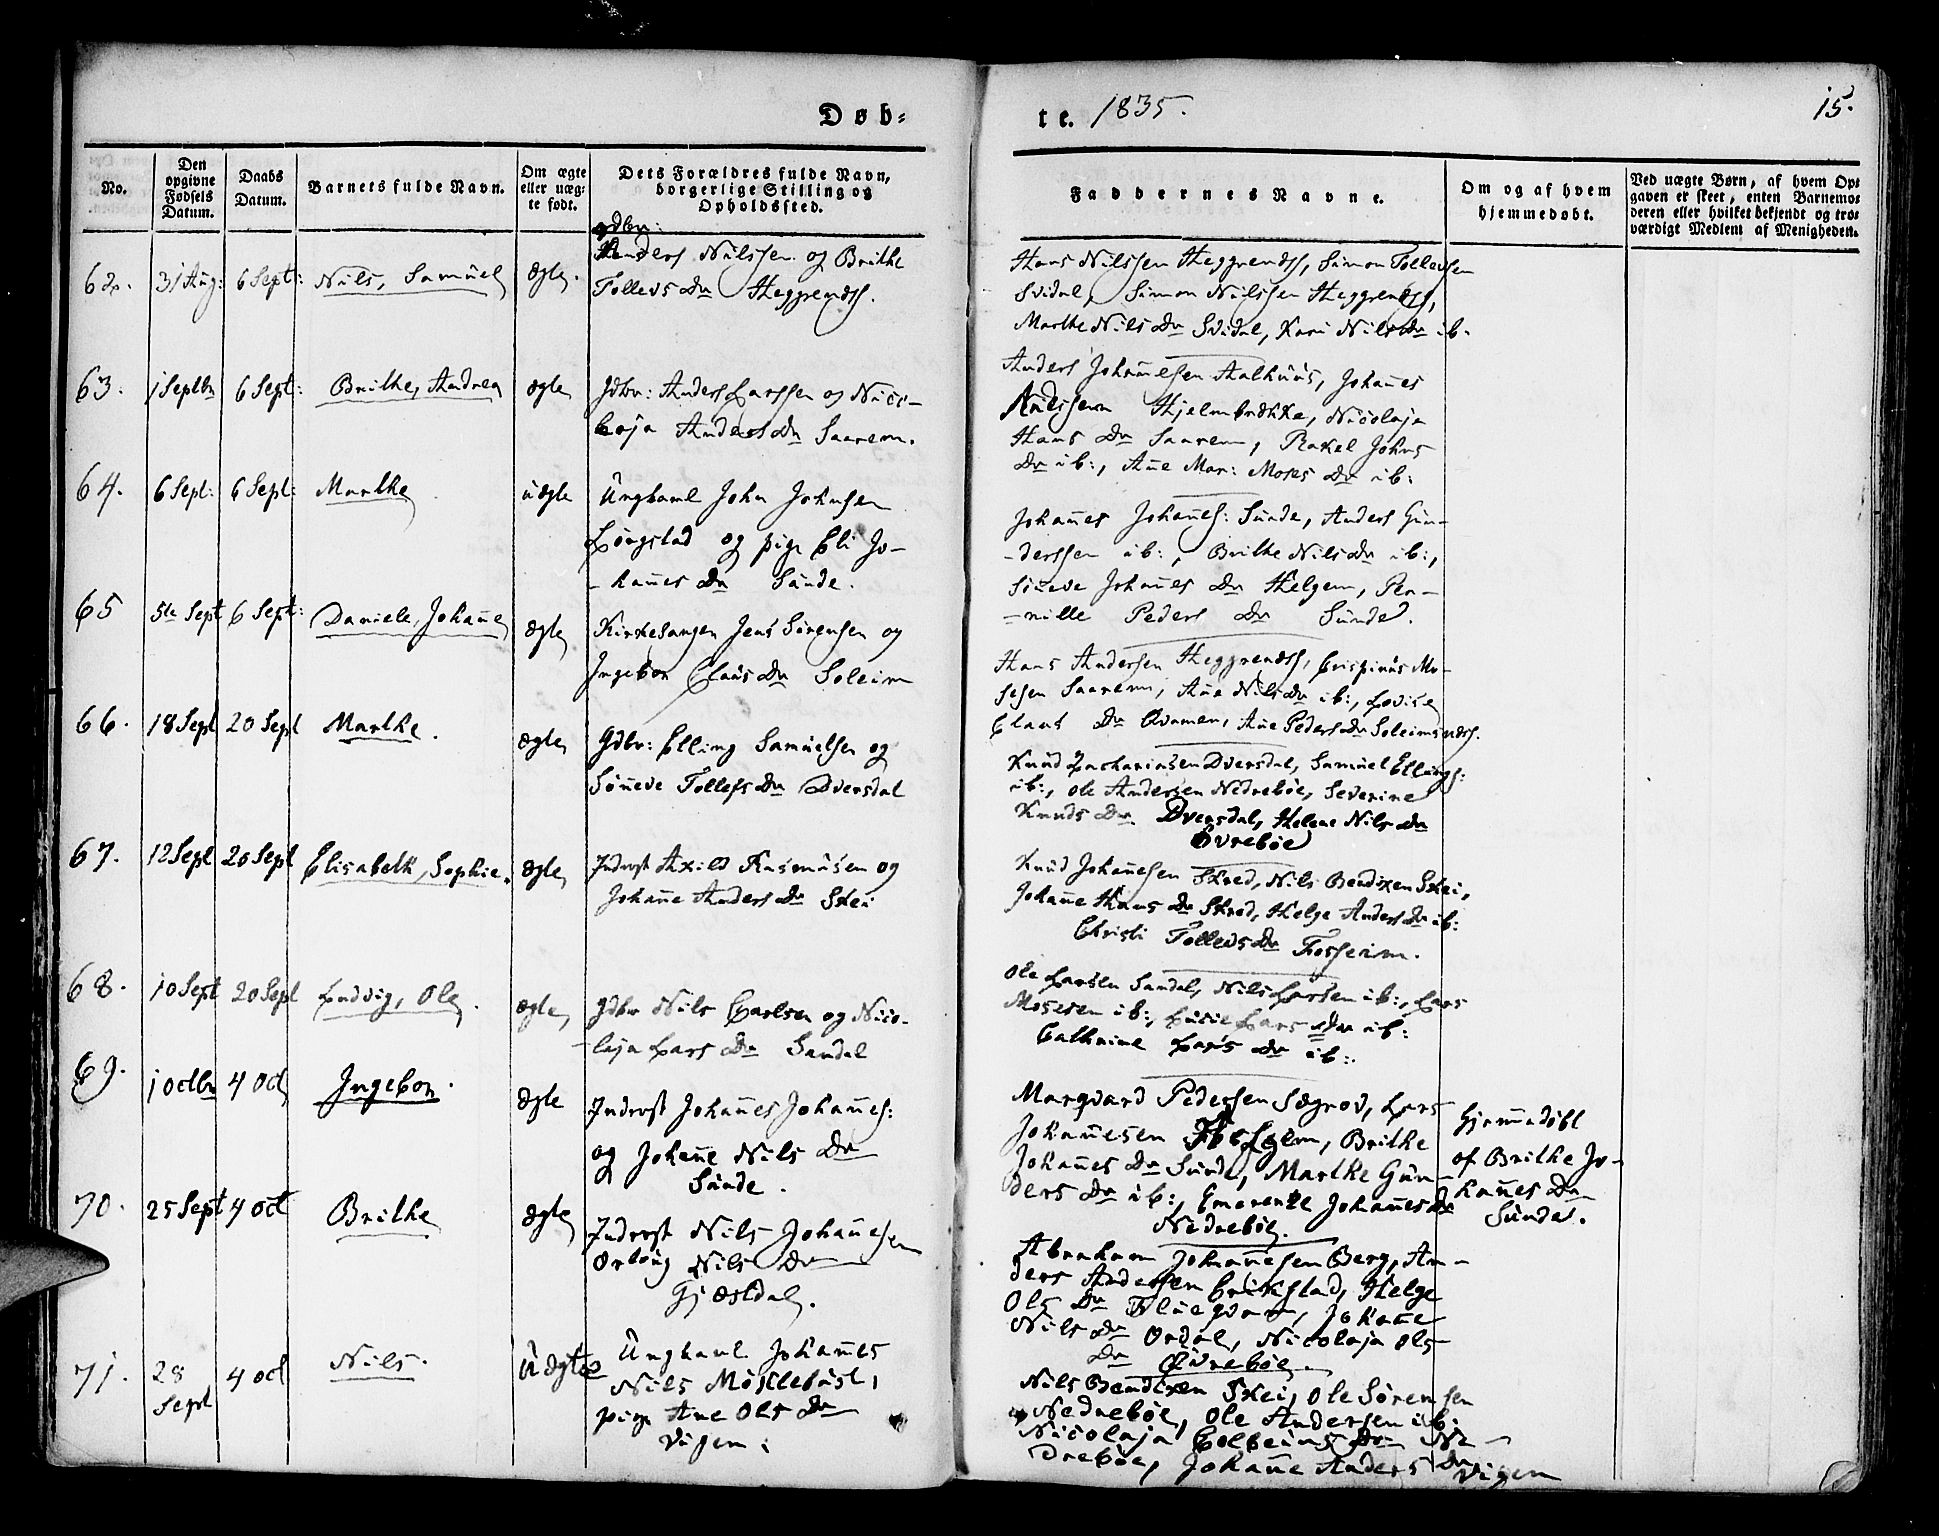 Døb-
te. 1835.
15.
No.
Den opgivne Fødsels Datum.
Daabs Datum.
Barnets fulde Navn.
Om ægte eller uæg-te født.
Dets Forældres fulde Navn, borgerlige Stilling og Opholdssted.
Faddernes Navne.
Om og af hvem hjemmedøbt.
Ved uægte Børn, af hvem Op-
gaven er skeet, enten Barnemo-
deren eller hvilket bekjendt og tro-
værdigt Medlem af Menigheden.
62. 31 Aug: 6 Sept: Nils, Samuel ægte.
Gdbr:
Anders Nilssen og Brithe
Tollevs Dr Heggrends.
Hans Nilssen Heggrends, Simon Tollevsen
Svidal, Simon Nilssen Heggrends,
Marthe Nils Dr Svidal, Kari Nils Dr ib.
63. 1 Septbr 6 Sept: Brithe, Andrea ægte
Gdbr: Anders Larssen og Nico-
laja Anders Dr Saarem.
Anders Johannesen Aalhuus, Johanes
Nilssen Hjelmbrække, Nicolaja
Hans Dr Saarem, Rakel Johns
Dr ib:, Ane Mar: Moses Dr ib:
64. 6 Sept: 6 Sept: Marthe uægte
Ungkarl John Johnsen
Longstad og pige Eli Jo-
-hannes Dr Sunde.
Johannes Johannes: Sunde, Anders Gun-
-derssen ib:, Brithe Nils Dr ib:,
Sineve Johannes Dr Helgem, Per-
-nille Peders Dr Sunde.
65 5te Sept 6 Sept: Daniele, Johanne ægte
Kirkesanger Jens Sørensen og
Ingebor Claus Dr Soleim
Hans Andersen Heggrends, Crispinus Mo-
sesen Saarem, Ane Nils Dr ib:, Lovise
Claus Dr Qvamen, Ane Peders Dr Soleimsnæss.
66. 18 Sept 20 Sept Marthe. ægte
Gdbr: Elling Samuelsen og
Sønneve Tollefs Dr Dversdal
Knud Zachariasen Dversdal, Samuel Ellings:
ib:, Ole Andersen Nedrebøe, Severine
Knuds Dr Dversdal, Helene Nils Dr
Øvrebøe
67. 12 Sept 20 Sept Elisabeth, Sophie. ægte
Inderst Axild Rasmusen og
Johanne Anders Dr Skei
Knud Johannesen Skred, Nils Bendixen Skei,
Johanne Hans Dr Skred, Helge Anders Dr ib:
Christi Tollevs Dr Fosseim.
68. 10 Sept 20 Sept Ludvig, Ole. ægte
Gdbr Nils Carlsen og Nico-
-laja Lars Dr Sandal
Ole Larsen Sandal, Nils Larsen ib:, Lars
Mosesen ib:, Lucie Lars Dr ib:
Cathrine Lars Dr ib:.
69. 1 Octbr 4 Oct Ingebor. ægte
Inderst Johannes Johannes:
og Johanne Nils Dr
Sunde.
Marqvard Pederssen Sægrov, Lars
Johannesen Helgem, Brithe
Johannes Dr Sunde, Marthe Gun-
ders Dr ib:, Emerentze Johannes Dr
Nedrebøe.
Hjemmedøbt
af Brithe Jo-
hannes Dr
Sunde.
70. 25 Sept 4 Oct Brithe ægte
Inderst Nils Johannesen
Ortbug Nils Dr
Gjæsdal.
Abraham Johannesen Berg, An-
ders Andersen Erikstad, Helge
Ols Dr Fluegvam, Johanne
Nils Dr Ordal, Nicolaja Ols
Dr Øvrebøe.
71. 28 Sept 4 Oct Nils. Uægte
Ungkarl Johannes
Nils Møklebust,
pige Ane Ols Dr
Vigen:
Nils Bendixen Skei, Ole Sørensen
Nedrebøe, Ole Andersen ib:
Nicolaja Colbeins Dr Ne-
drebøe, Johanne Anders Dr
Vigen